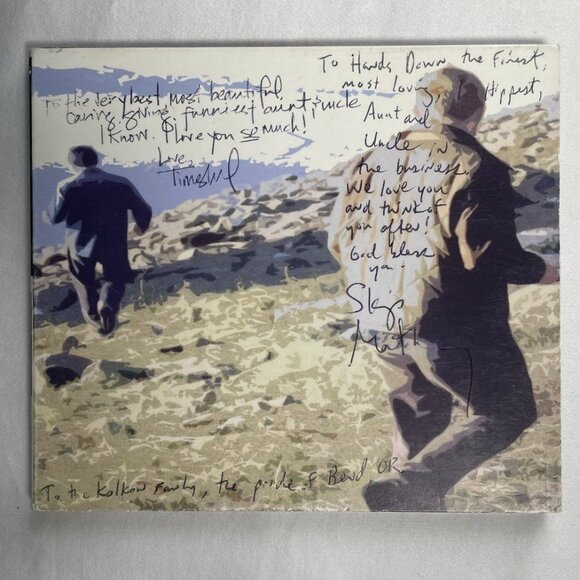 To the very best, most beautiful,
caring, giving, funniest aunt & uncle
I know. I love you so much!
Love,
To Hands Down the Finest,
most loving, Hippest,
Aunt and
Uncle in
the business.
We love you
and think of
you often!
God bless
you-
Skip
To the Kolkow Family, the pride of Bend, OR.